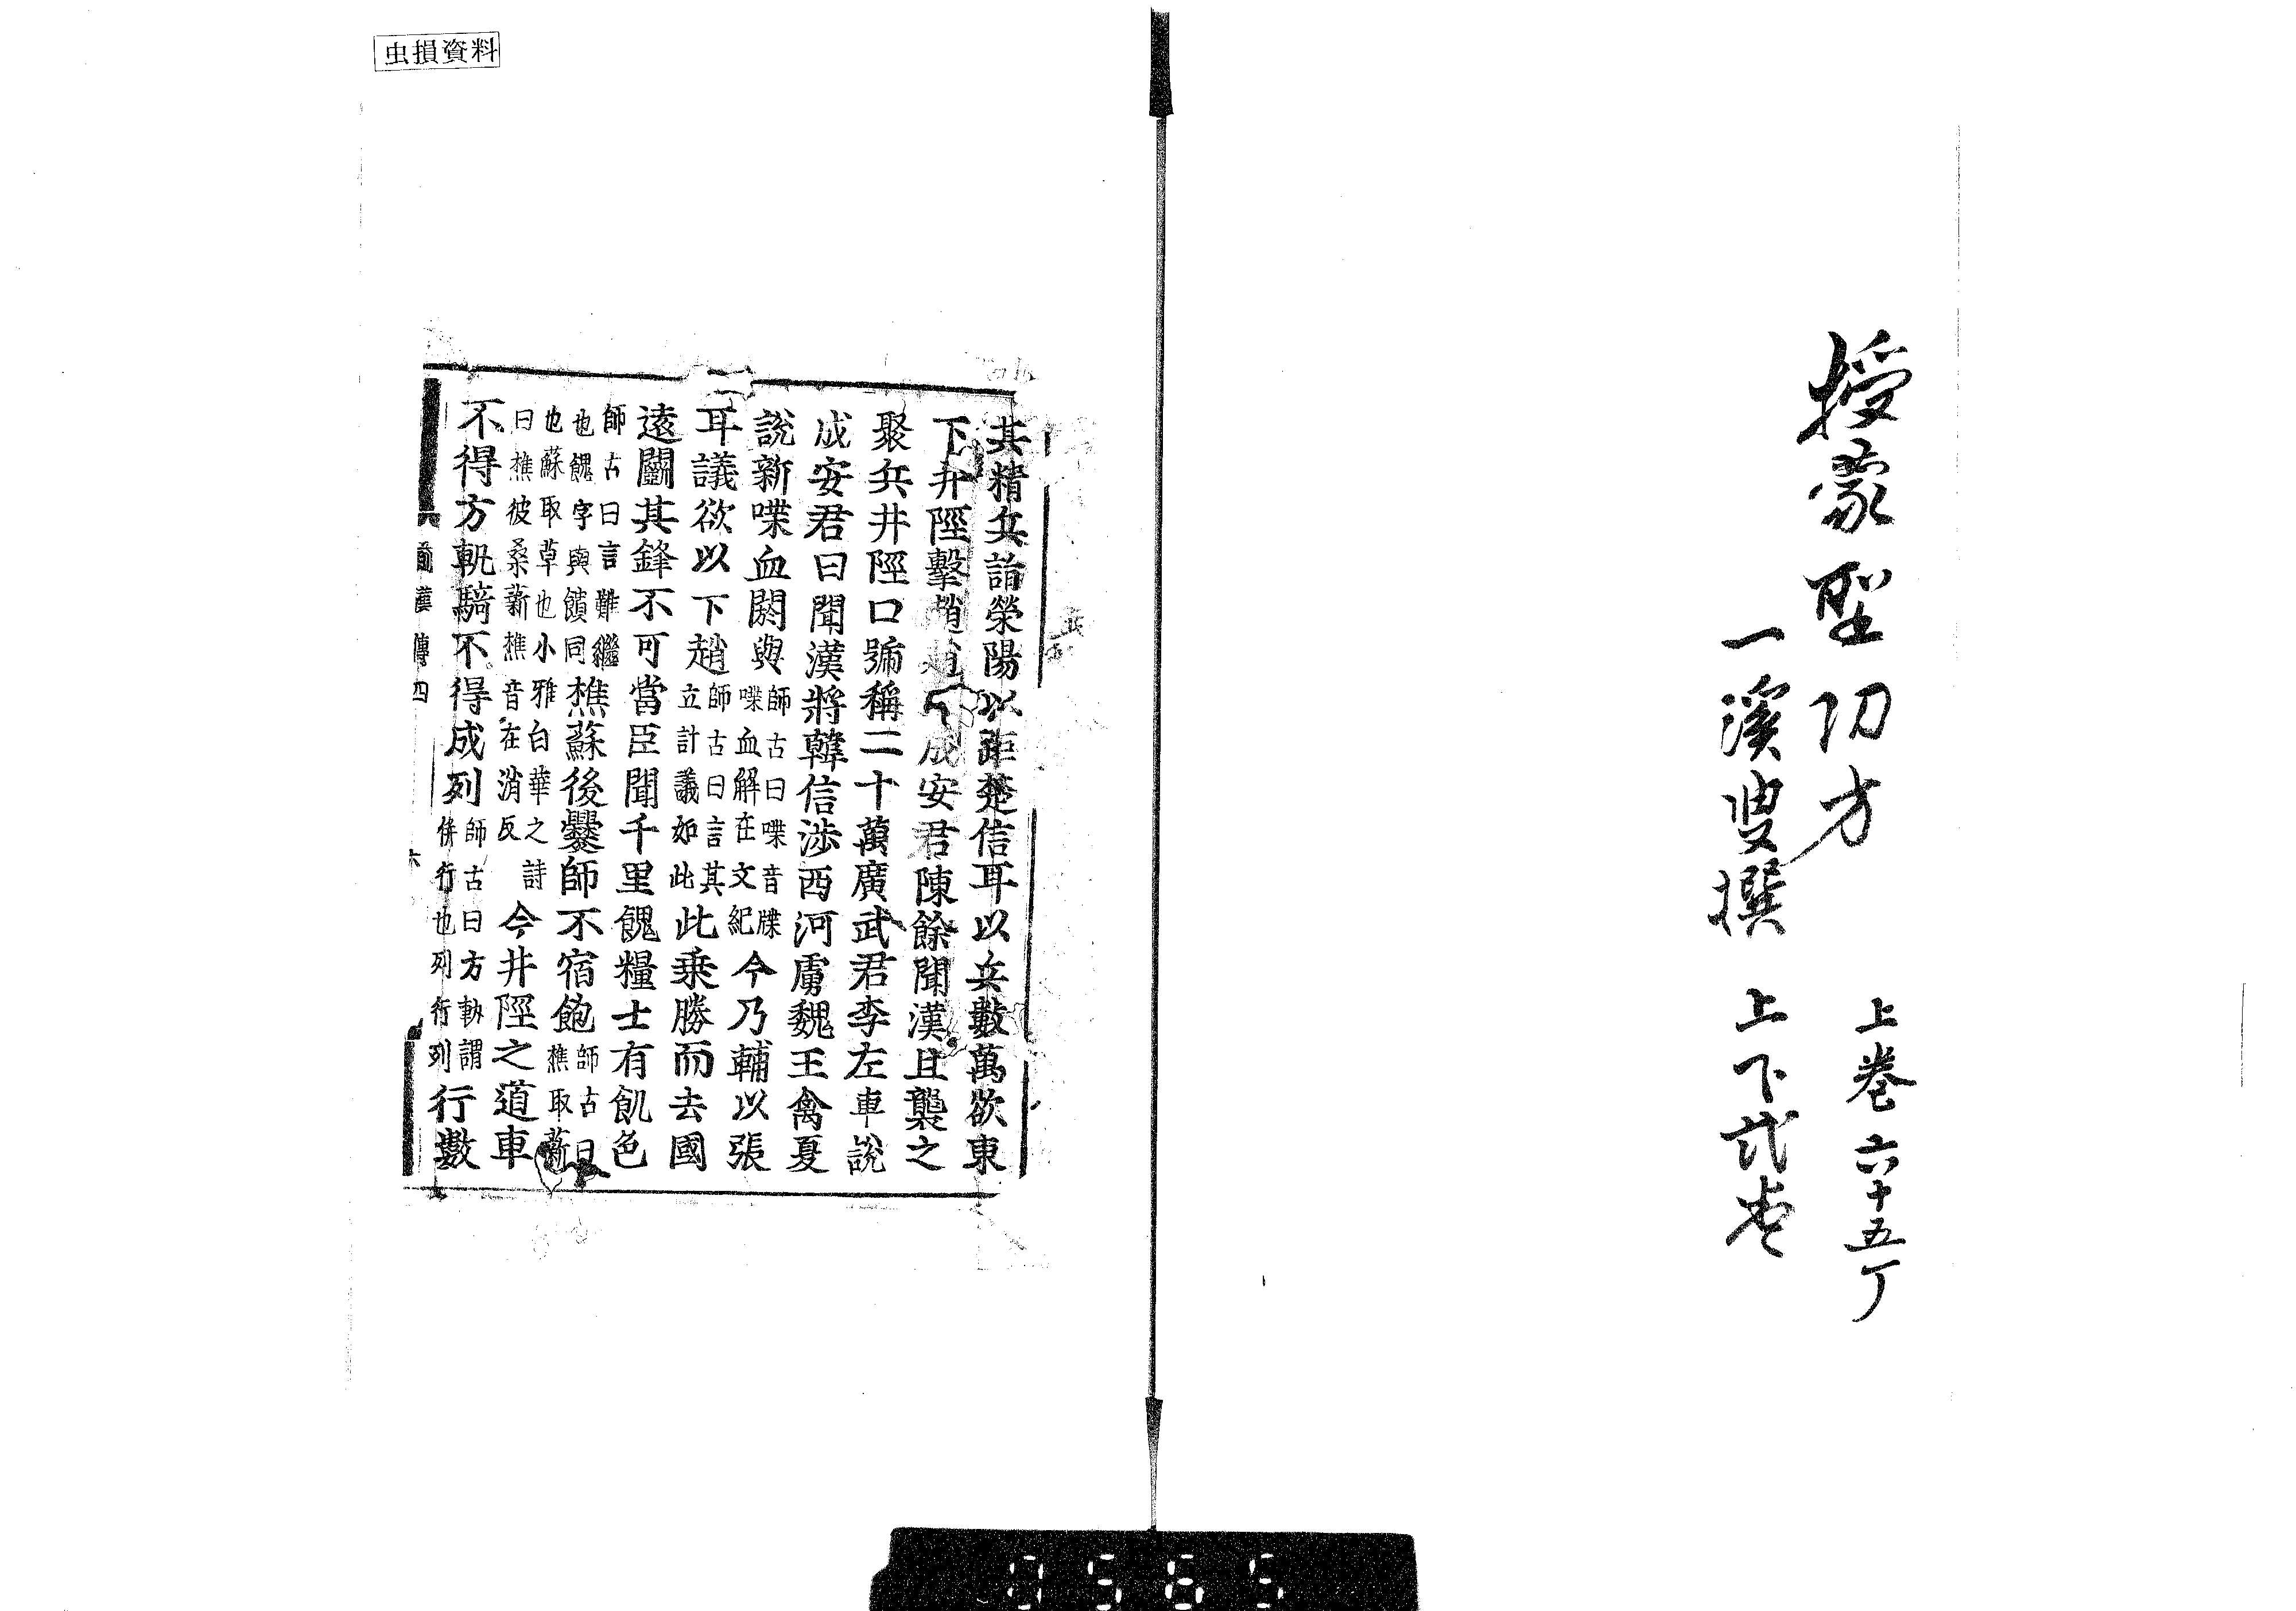 虫損資料
授蒙聖功方
上巻六十五丁
一溪叟撰
上下弐巻
其精兵詣滎陽以距楚信耳以兵數萬欲東
下井陘擊趙成安君陳餘聞漢且襲之
聚兵井陘口號稱二十萬廣武君李左車說
成安君曰聞漢將韓信涉西河虜魏王禽夏
說新喋血閼與
師古曰喋音牒
喋血解在文紀
今乃輔以張
耳議欲以下趙
師古曰言其
立計議如此
此乗勝而去國
遠鬭其鋒不可當臣聞千里餽糧士有飢色
師古曰言難繼
也餽字與饋同
樵蘇後爨師不宿飽
師古曰
樵取薪
也蘇取草也小雅白華之詩
曰樵彼桑薪樵音在消反
今井陘之道車
不得方軌騎不得成列
師古曰方軌謂
併行也列行列
行數
前漢傳四
六
0565